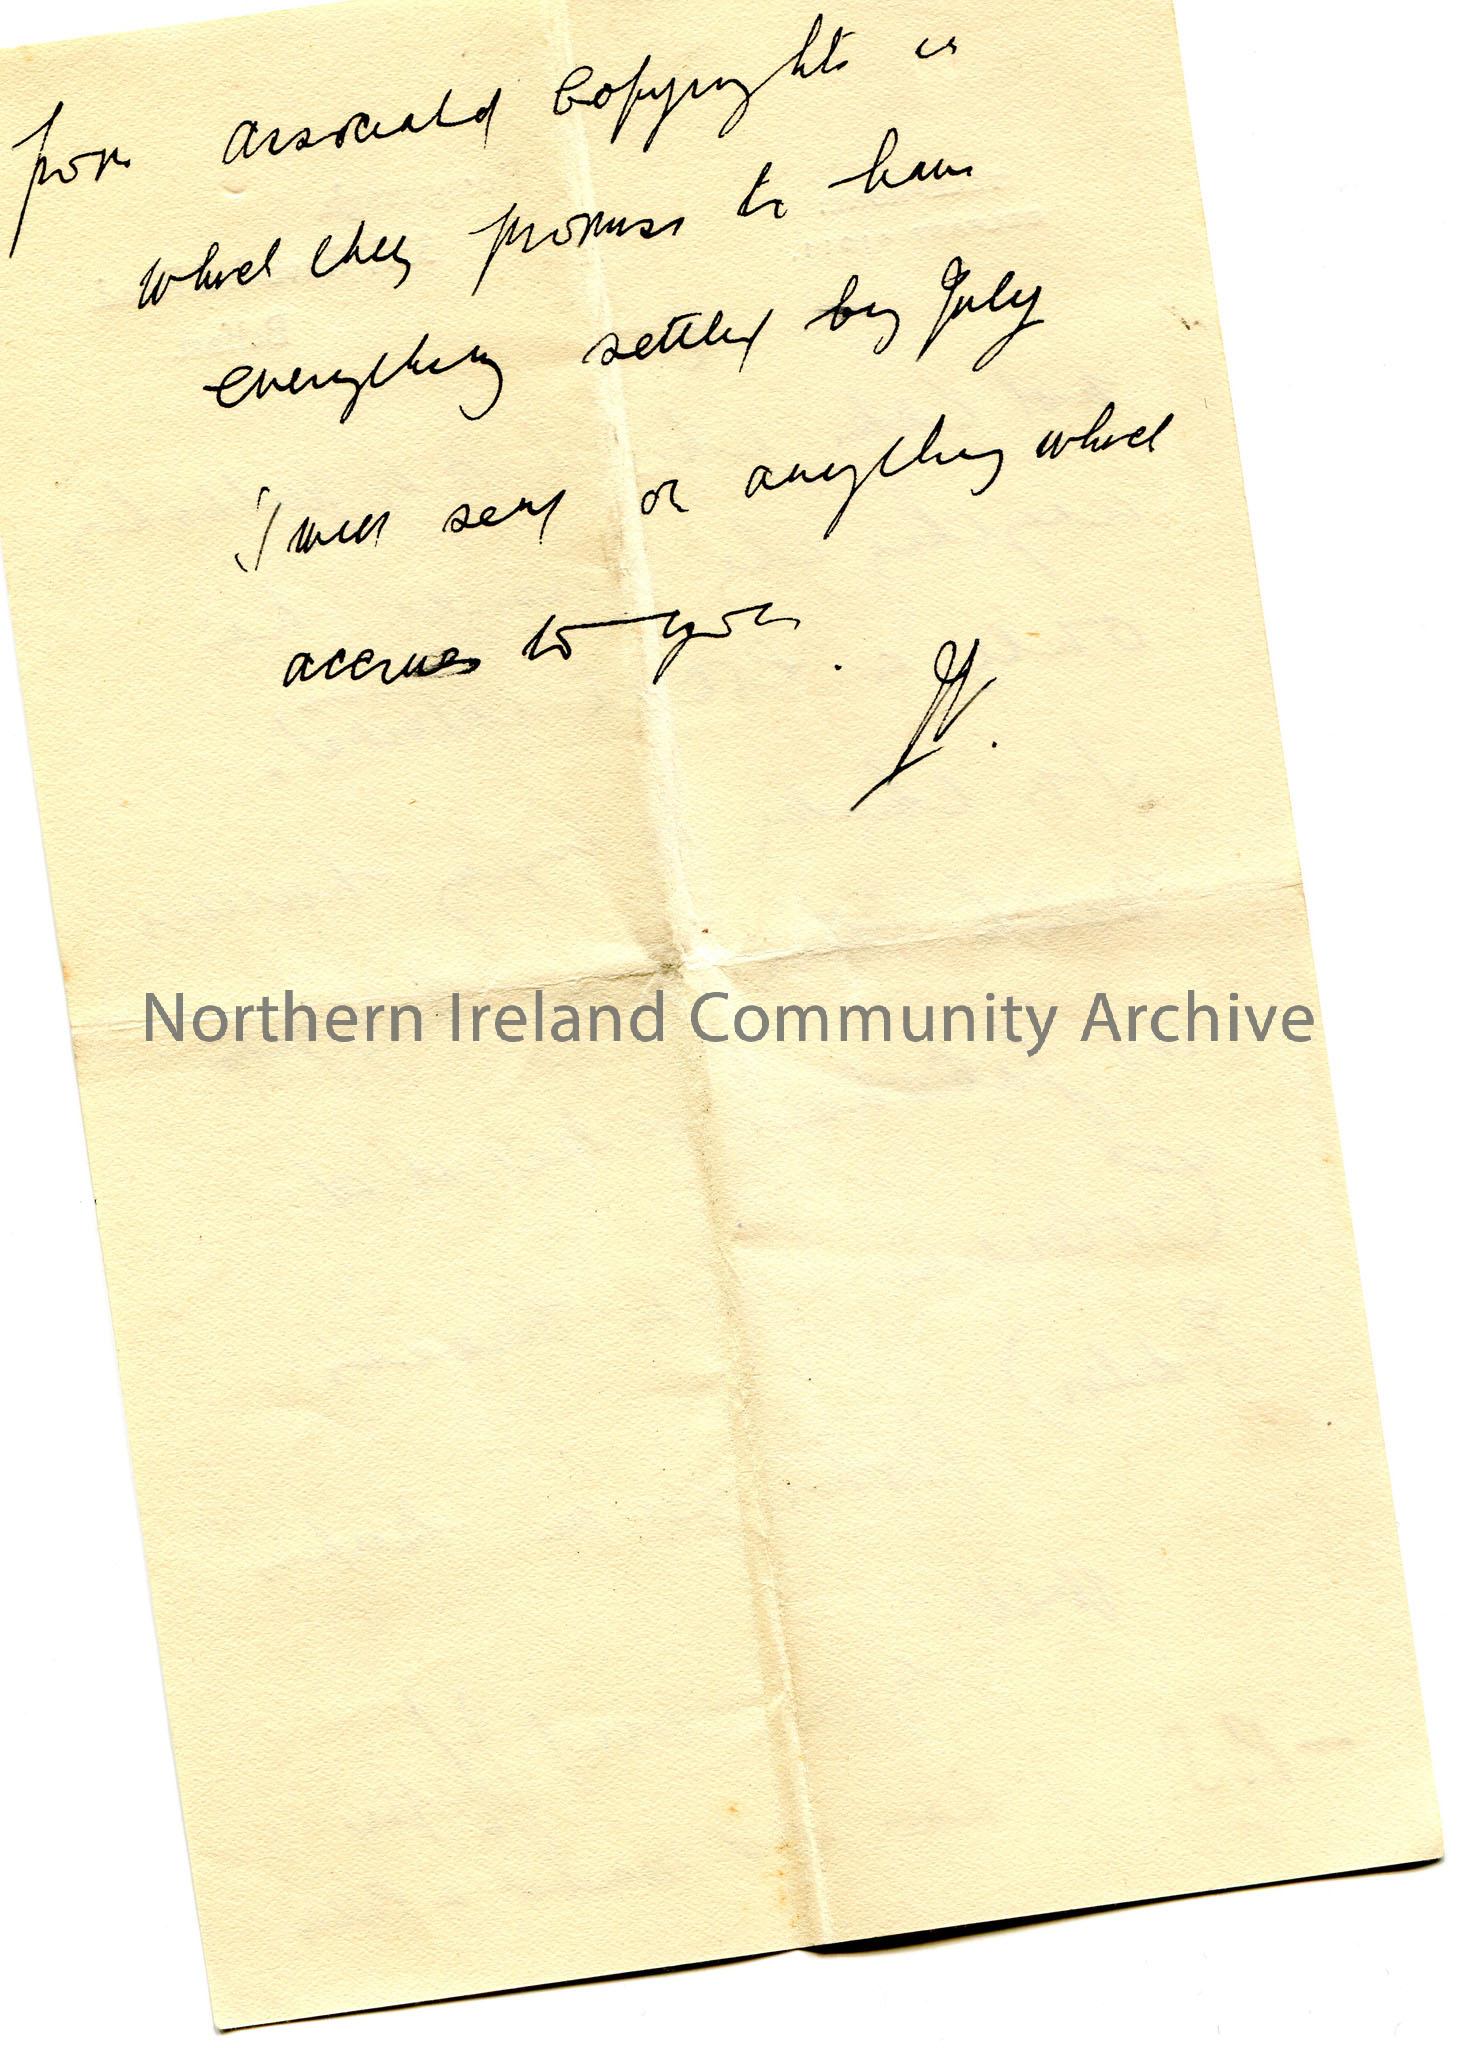 from Associated Copyrights in
which they promise to have
everything settled by July
I will send on anything which
accrues to you.
Northern Ireland Community Archive